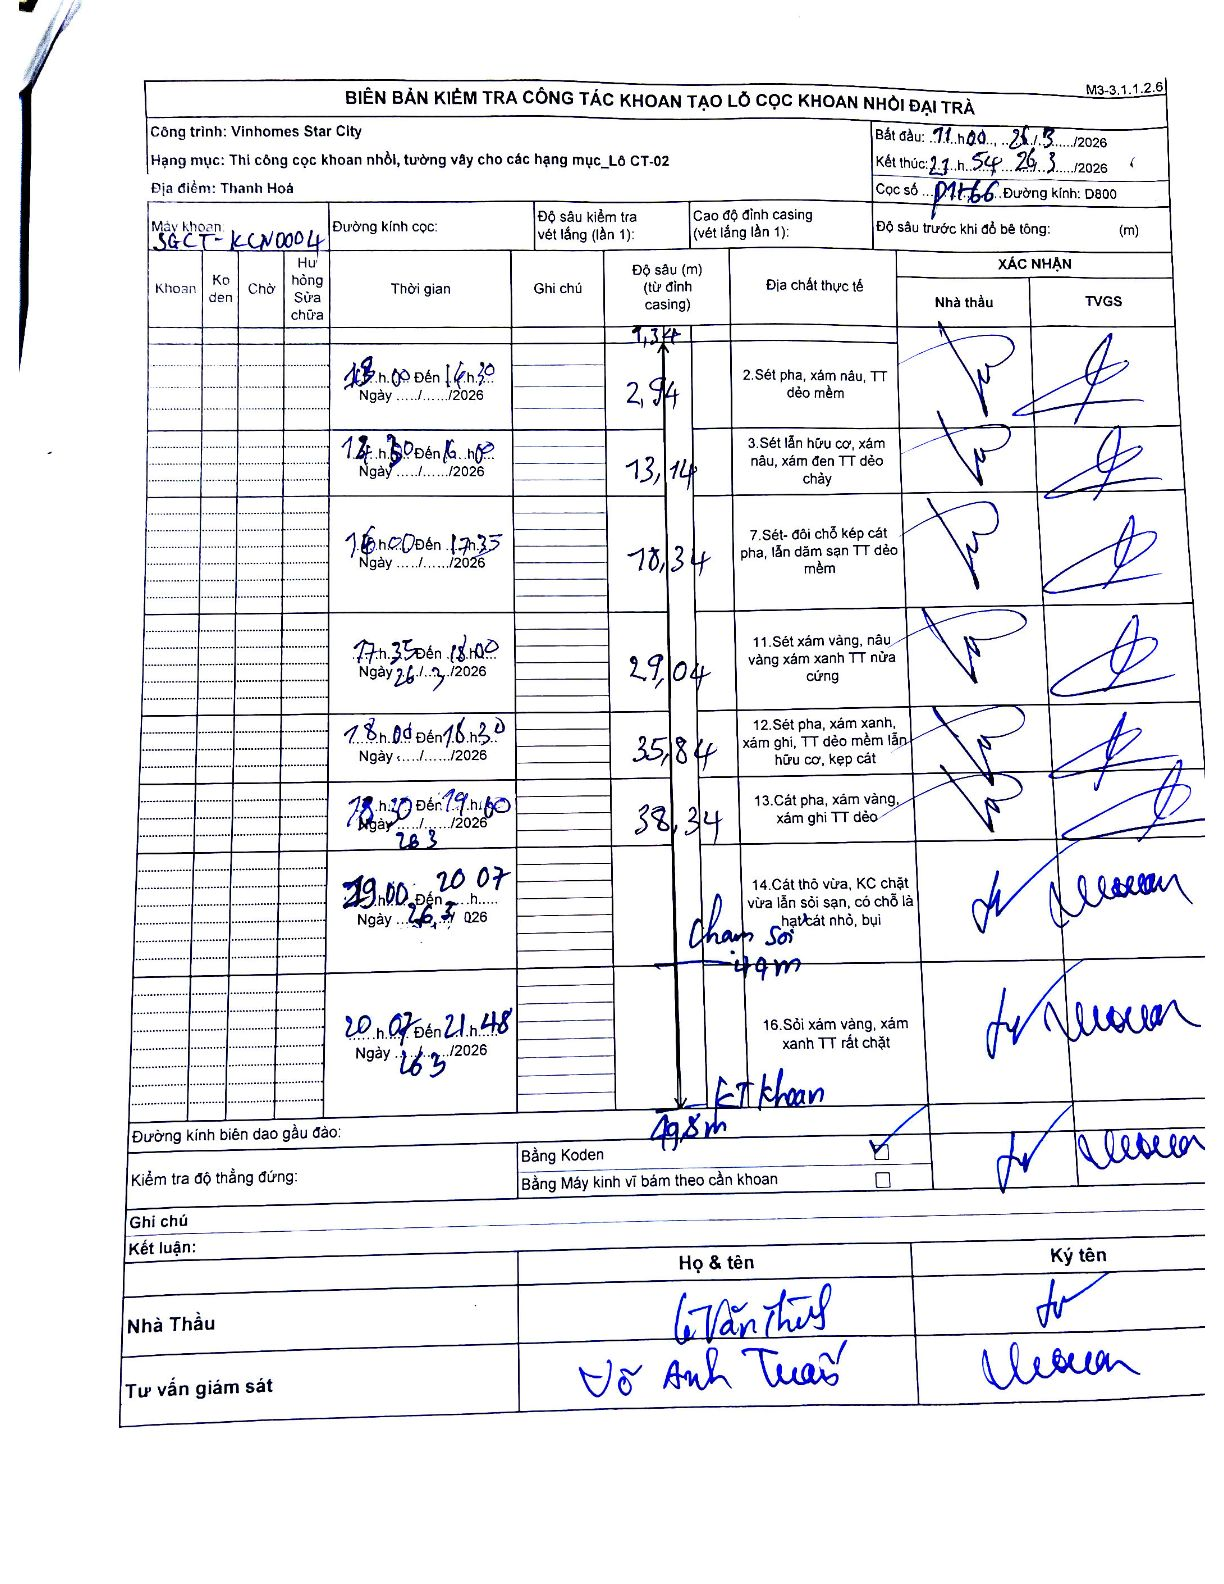 M3-3.1.1.2.6
BIÊN BẢN KIỂM TRA CÔNG TÁC KHOAN TẠO LỖ CỌC KHOAN NHỒI ĐẠI TRÀ
Công trình: Vinhomes Star City
Bắt đầu: 11 h 00, 26/3/2026
Hạng mục: Thi công cọc khoan nhồi, tường vây cho các hạng mục_Lô CT-02
Kết thúc: 21 h 54 26 3/2026
Địa điểm: Thanh Hoá
Cọc số Đường kính: D800
Máy khoan:
SGCT-KCN0004
Đường kính cọc:
Độ sâu kiểm tra
vét lắng (lần 1):
Cao độ đỉnh casing
(vét lắng lần 1):
Độ sâu trước khi đổ bê tông: (m)
Khoan
Ko
den
Chờ
Hư
hỏng
Sửa
chữa
Thời gian
Ghi chú
Độ sâu (m)
(từ đỉnh
casing)
Địa chất thực tế
XÁC NHẬN
Nhà thầu
TVGS
1,34
h.00 Đến 14h30
Ngày ...../....../2026
2,94
2.Sét pha, xám nâu, TT
dẻo mềm
h.30 Đến 16 h00
Ngày ...../....../2026
13,14
3.Sét lẫn hữu cơ, xám
nâu, xám đen TT dẻo
chảy
16 h00 Đến 17h35
Ngày ...../....../2026
18,34
7.Sét- đôi chỗ kép cát
pha, lẫn dăm sạn TT dẻo
mềm
17 h.35 Đến 18h00
Ngày 26/3/2026
29,04
11.Sét xám vàng, nâu
vàng xám xanh TT nửa
cứng
18 h.00 Đến 18 h30
Ngày ...../....../2026
35,84
12.Sét pha, xám xanh,
xám ghi, TT dẻo mềm lẫn
hữu cơ, kẹp cát
18 h.30 Đến 19 h.00
Ngày ...../....../2026
26 3
38,34
13.Cát pha, xám vàng,
xám ghi TT dẻo
19h00 Đến 20 h 07
Ngày 26/3/2026
14.Cát thô vừa, KC chặt
vừa lẫn sỏi sạn, có chỗ là
hạt cát nhỏ, bụi
Chạm sỏi
49m
20 h 07 Đến 21 h 48
Ngày ...../....../2026
26 3
16.Sỏi xám vàng, xám
xanh TT rất chặt
KT khoan
49,8m
Đường kính biên dao gầu đào:
Kiểm tra độ thẳng đứng:
Bằng Koden
Bằng Máy kinh vĩ bám theo cần khoan
Ghi chú
Kết luận:
Họ & tên
Ký tên
Nhà Thầu
Tư vấn giám sát
Võ Anh Tuấn